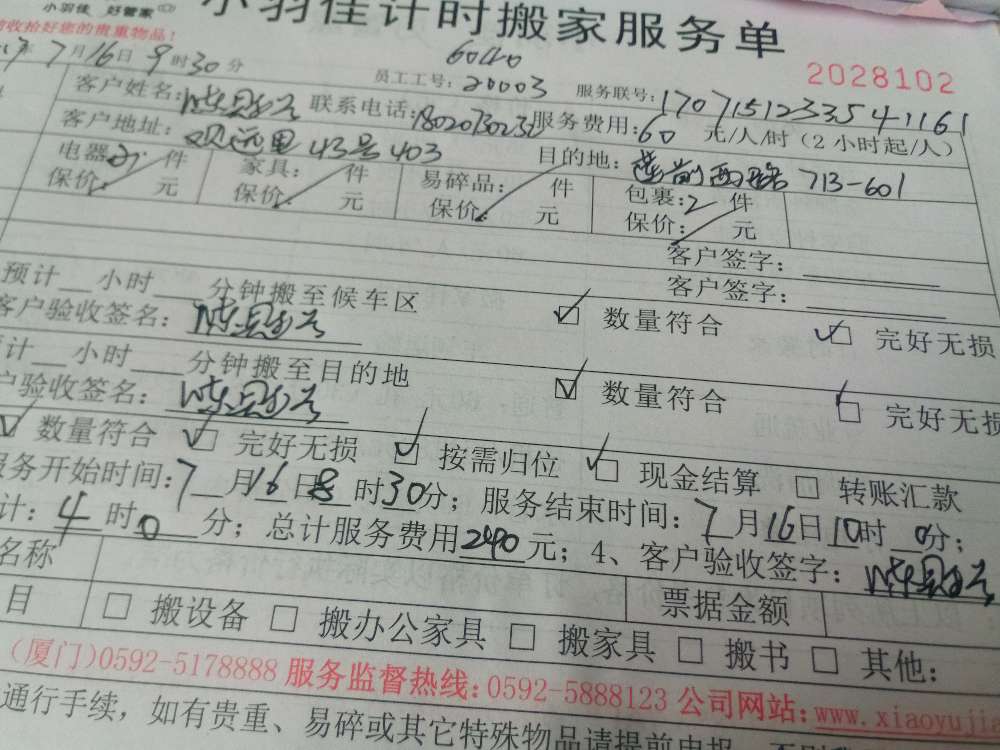 小羽佳 好管家
小羽佳计时搬家服务单
请收拾好您的贵重物品!
7月16日9时30分
6040
员工工号:20003
服务联号:1707151233541161
2028102
客户姓名:
联系电话:
服务费用:60元/人/时(2小时起/人)
客户地址: 观远里43号403
目的地: 莲前西路713-601
电器: 件 家具: 件 易碎品: 件 包裹:2件
保价: 元 保价: 元 保价: 元 保价: 元
客户签字:
客户签字:
预计 小时 分钟搬至候车区 数量符合 完好无损
客户验收签名:
计 小时 分钟搬至目的地 数量符合 完好无损
户验收签名:
数量符合 完好无损 按需归位 现金结算 转账汇款
服务开始时间:7月16日8时30分;服务结束时间:7月16日10时0分;
计:4时0分;总计服务费用240元;4、客户验收签字:
名称 票据金额
目 搬设备 搬办公家具 搬家具 搬书 其他:
(厦门)0592-5178888 服务监督热线:0592-5888123 公司网站:www.xiaoyujia
通行手续,如有贵重、易碎或其它特殊物品请提前申报